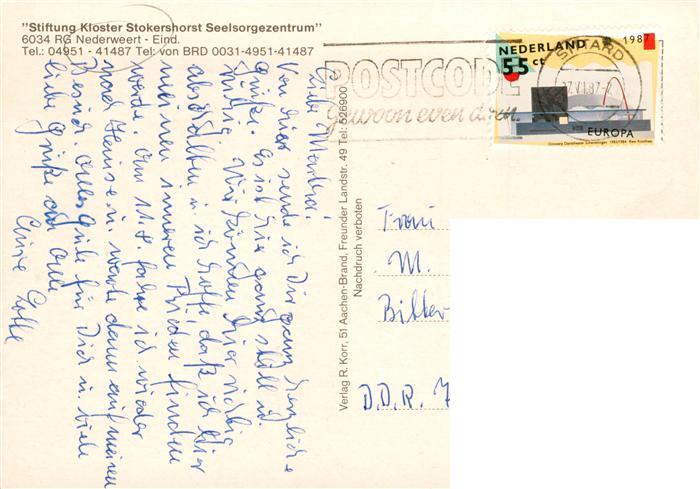 "Stiftung Kloster Stokershorst Seelsorgezentrum"
6034 RG Nederweert - Eind.
Tel.: 04951 - 41487 Tel: von BRD 0031-4951-41487
NEDERLAND 1987
55 ct
EUROPA
SITTARD
POSTCODE
gewoon even doen.
Liebe Martha!
Von hier sende ich Dir ganz herzliche
Grüße. Es ist hier ganz still u.
ruhig. Wir
abschalten u. ich hoffe, daß ich hier
meinen inneren Frieden finden
werde. Am 11.8. fahre ich wieder
nach Hause u. warte dann auf meinen
Besuch. Alles Gute für Dich u. viele
liebe Grüße an alle
Verlag R. Korr, 51 Aachen-Brand, Freunder Landstr. 49 Tel: 526900
Nachdruck verboten
Frau
M.
Bitter
D.D.R. 7